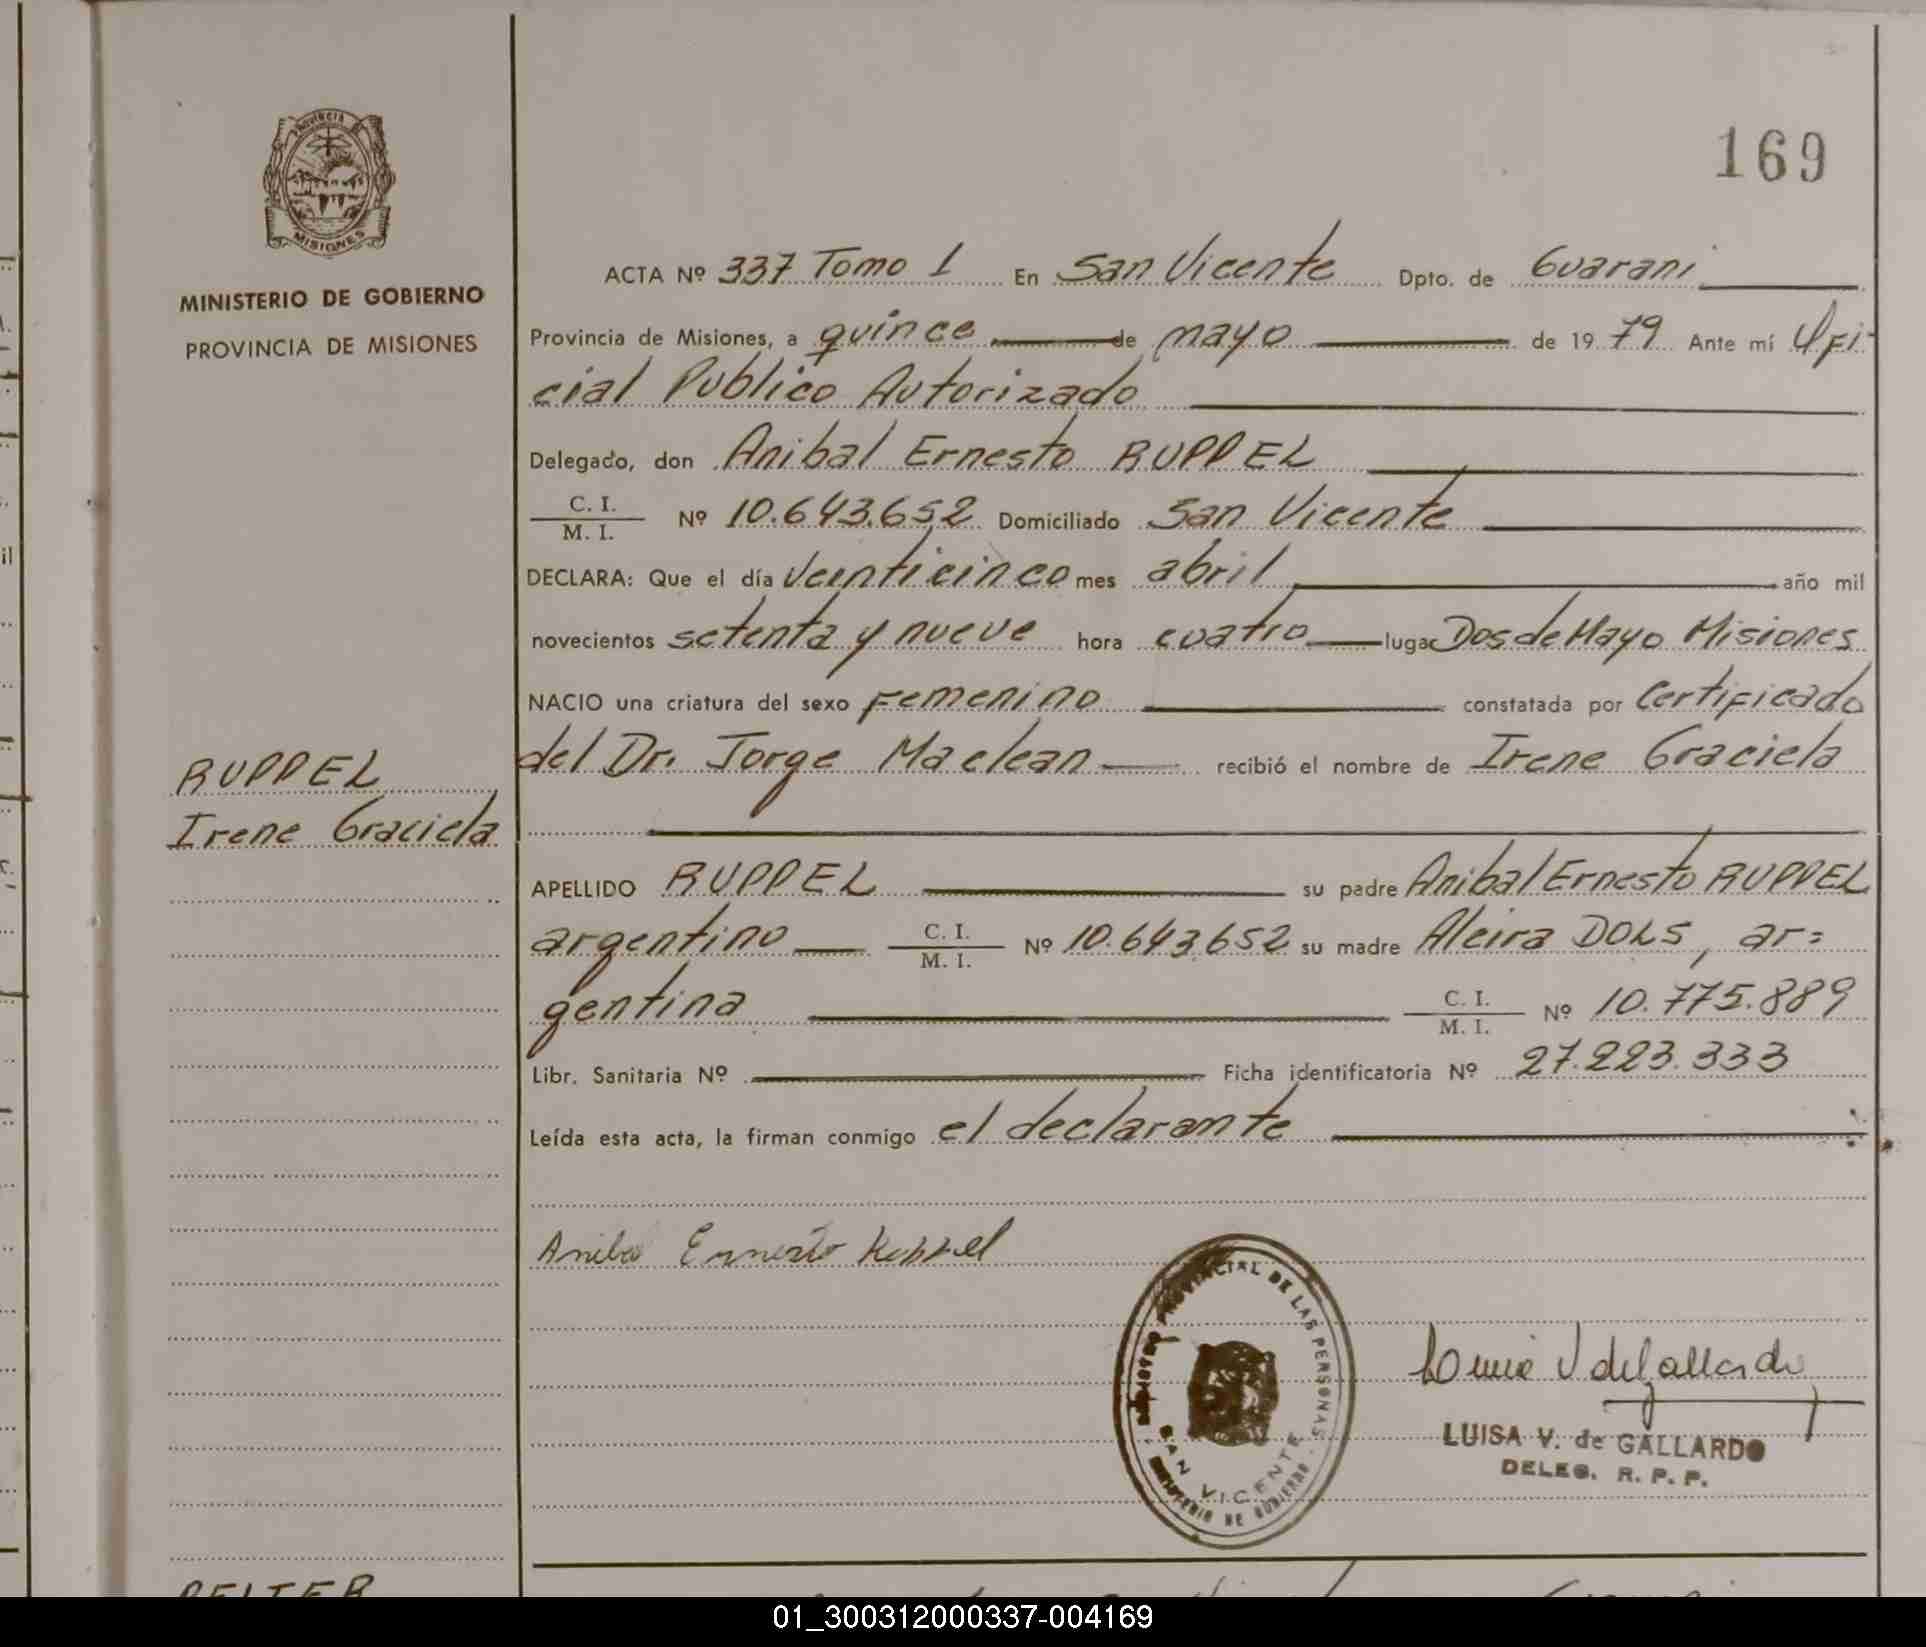 169
PROVINCIA DE
MISIONES
MINISTERIO DE GOBIERNO
PROVINCIA DE MISIONES
ACTA Nº 337 Tomo 1 En San Vicente Dpto. de Guarani
Provincia de Misiones, a quince de mayo de 1979 Ante mí Ofi-
cial Publico Autorizado
Delegado, don Anibal Ernesto RUPPEL
C. I.
M. I. Nº 10.643.652 Domiciliado San Vicente
DECLARA: Que el día Veinticinco mes abril año mil
novecientos setenta y nueve hora cuatro lugar Dos de Mayo Misiones
NACIO una criatura del sexo Femenino constatada por Certificado
del Dr. Jorge Maclean recibió el nombre de Irene Graciela
RUPPEL
Irene Graciela
APELLIDO RUPPEL su padre Anibal Ernesto RUPPEL
argentino C. I.
M. I. Nº 10.643.652 su madre Alcira DOLS, ar=
gentina C. I.
M. I. Nº 10.775.889
Libr. Sanitaria Nº Ficha identificatoria Nº 27.223.333
Leída esta acta, la firman conmigo el declarante
Anibal Ernesto Ruppel
PROVINCIAL DE LAS PERSONAS
SAN VICENTE
MINISTERIO DE GOBIERNO
LUISA V. de GALLARDO
DELEG. R. P. P.
01_300312000337-004169